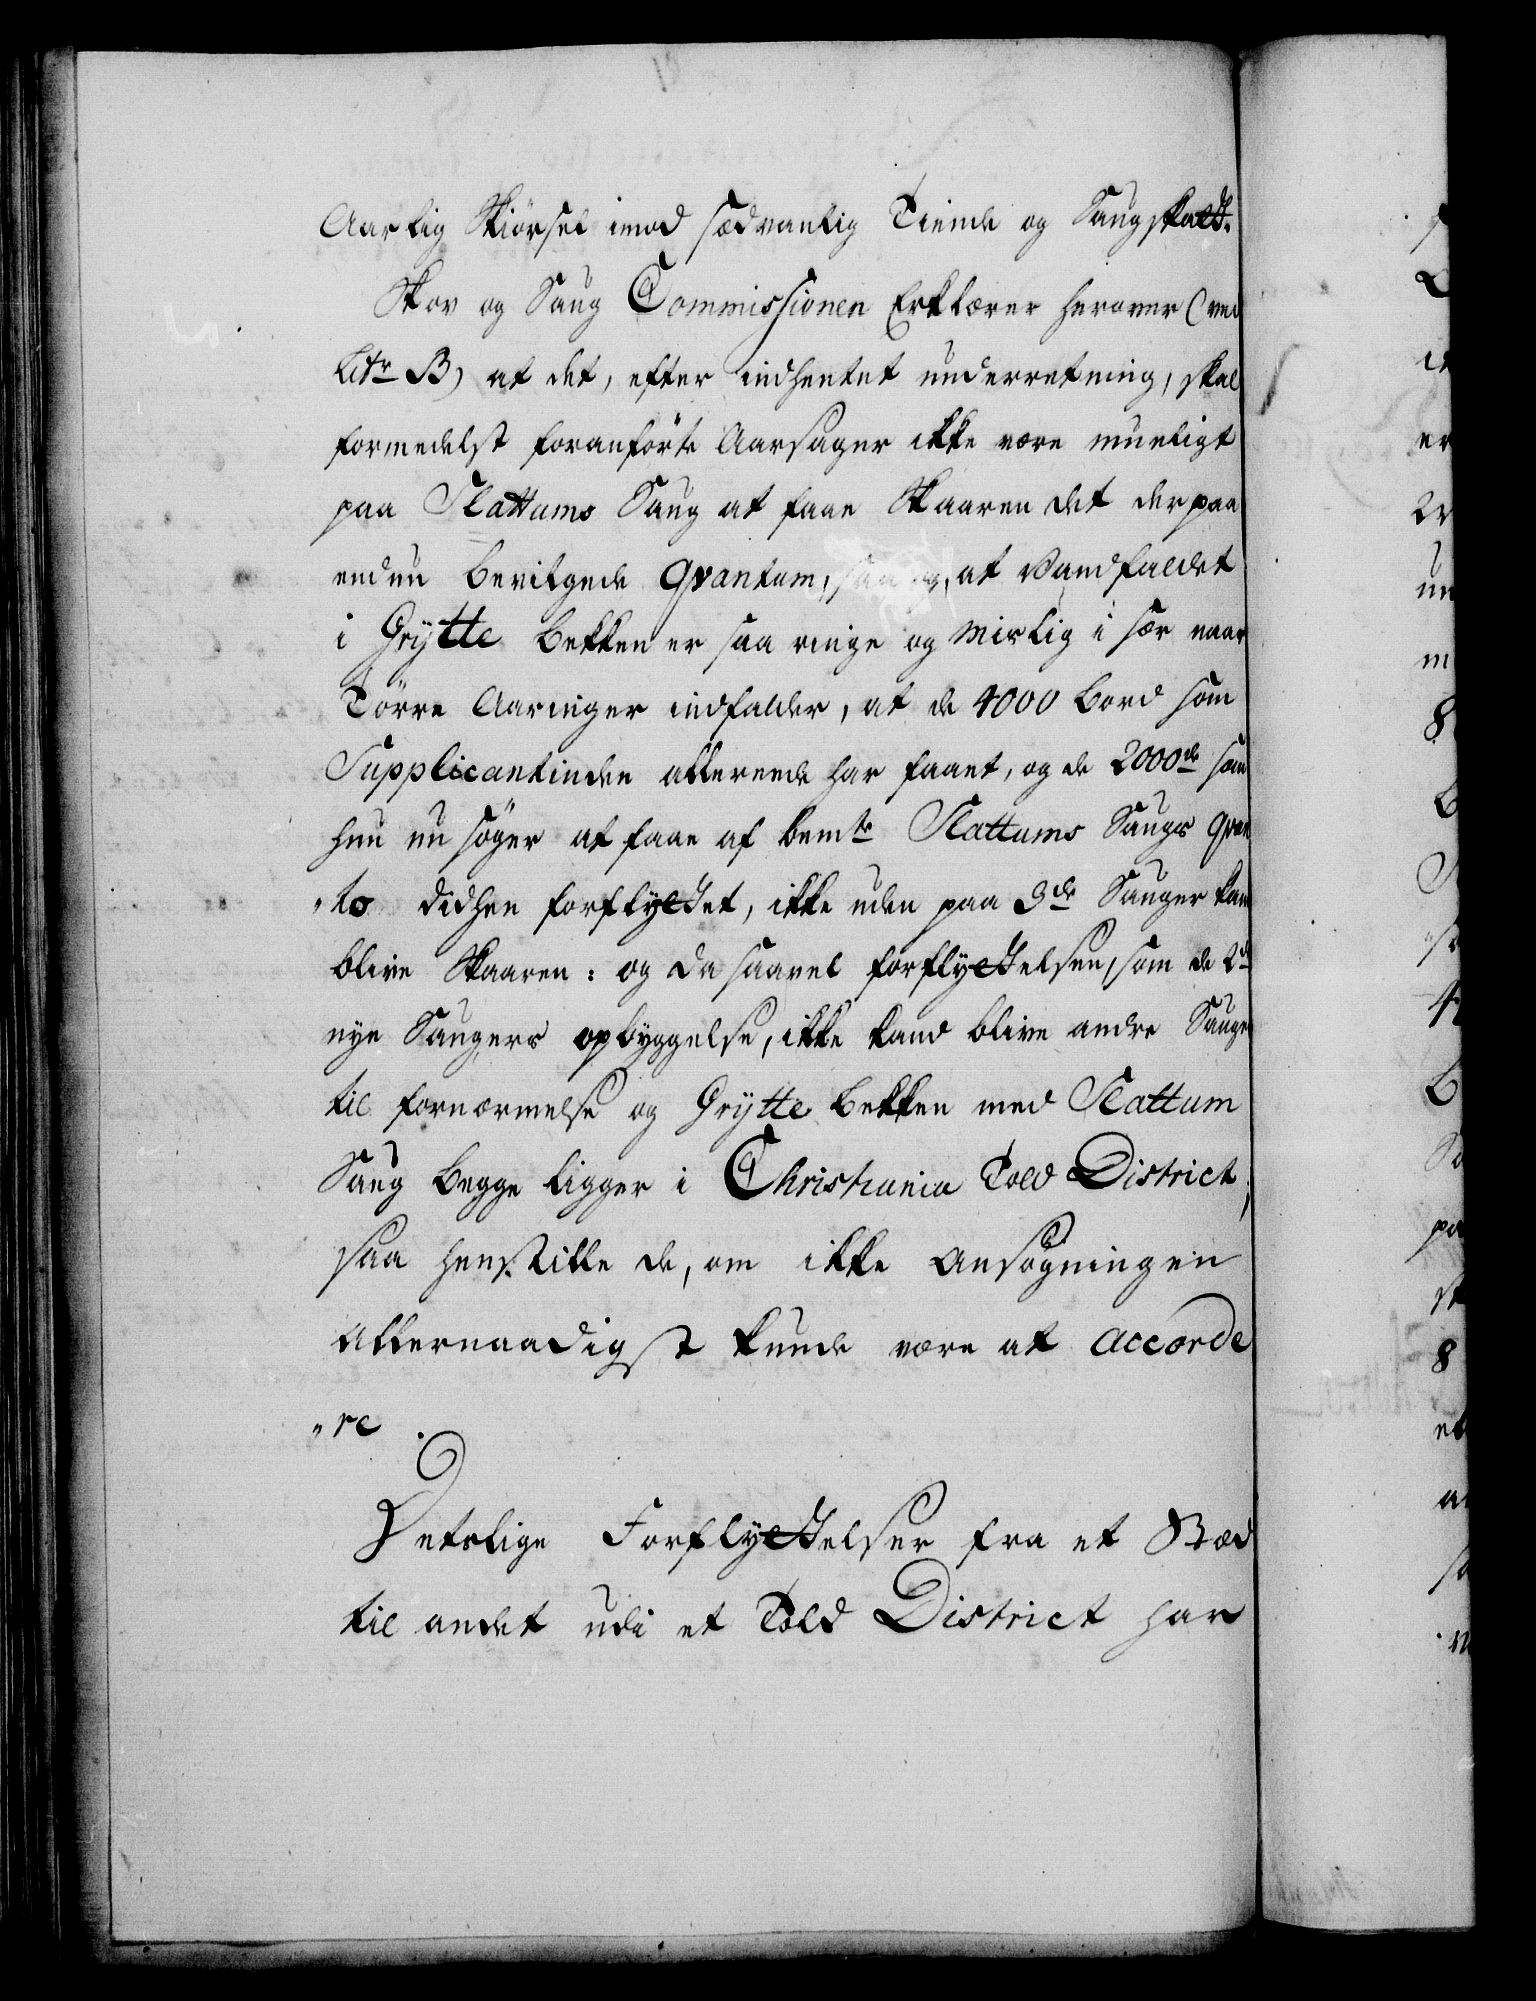 Aarlig Skiørsel imod sædvanlig Tiende og Saugskatt.
Skov og Saug Commissionen Erklærer herover (ved
Litr B) at det, efter indhentet underretning, skal
formedelst foranførte Aarsager ikke være mueligt
paa Slattums Saug at faae Skaaren det derpaa
endnu bevilgede Qvantum, saa og, at Vandfaldet
i Grÿtte Bekken er saa ringe og Mislig i sær naar
Tørre Aaringer indfalder, at de 4000 Bord som
Supplicantinden allerede har faaet, og de 2000de som
hun nu søger at faae af bemte Slattums Saugs Qvan
„to didhen forflyttet, ikke uden paa 3de Sauger kan
blive Skaaren: og da saavel forflyttelsen, som de 2de
nye Saugers opbyggelse, ikke kand blive andre Sauger
til fornærmelse og Grÿtte Bekken med Slattum
Saug Begge ligger i Christiania Told District,
saa henstille de, om ikke Ansøgningen
Allernaadigst kunde være at accorde
„re.
Detslige Forflyttelser fra et Stæd
til andet udi et Told District har